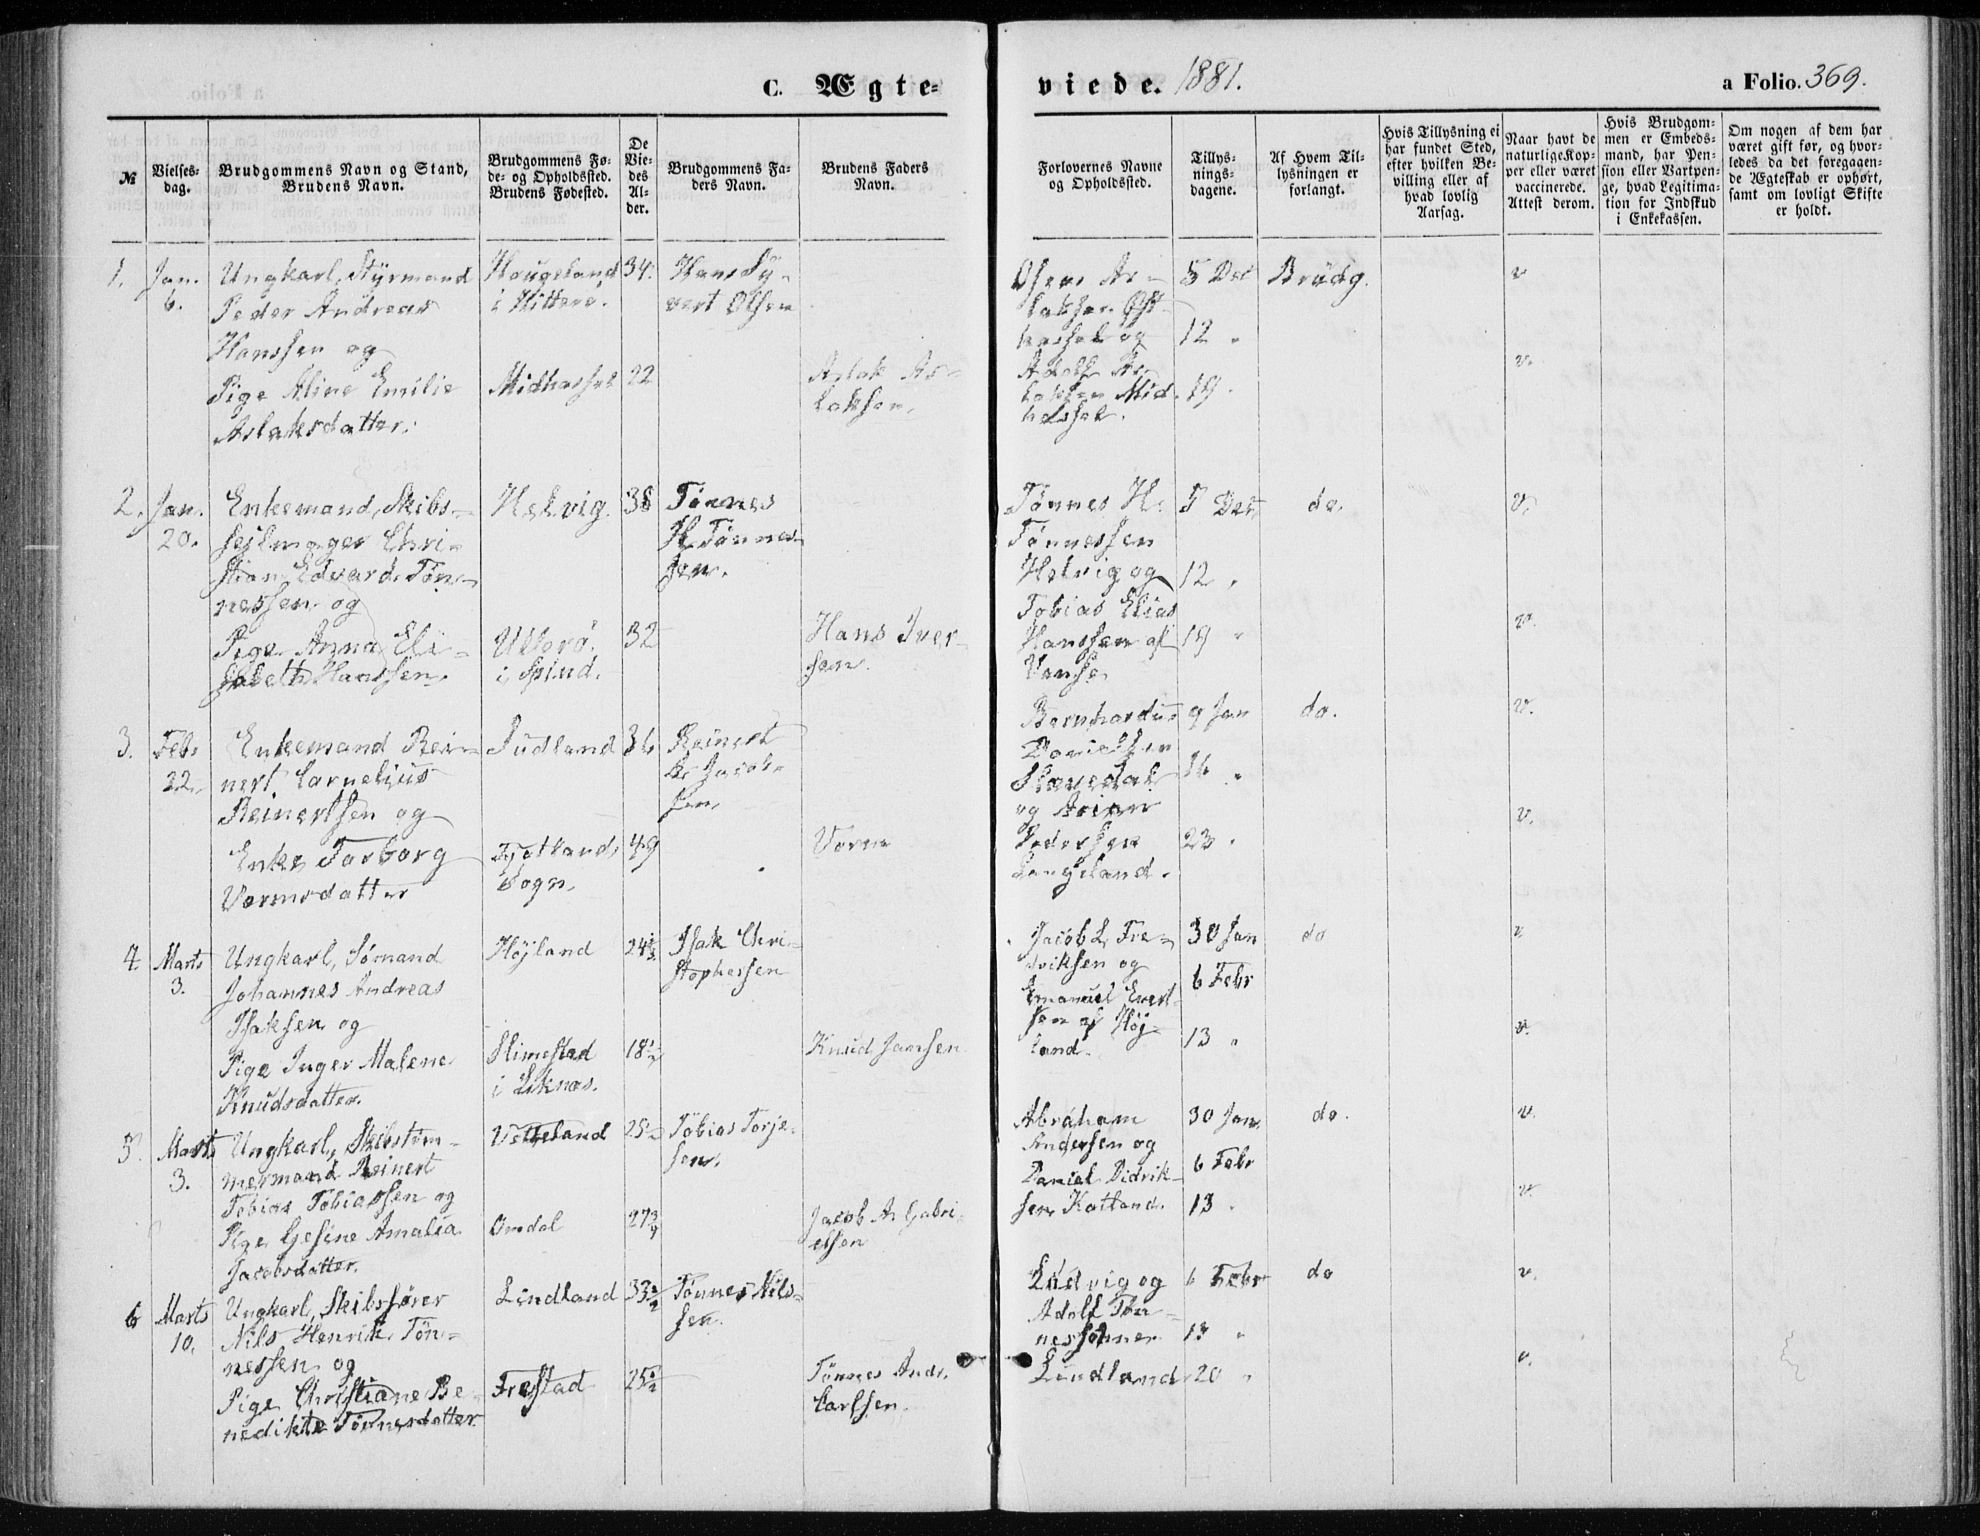 C. Ægte-
viede. 1881.
a Folio. 369.
№
Vielses-
dag.
Brudgommens Navn og Stand,
Brudens Navn.
Brudgommens Fø-
de- og Opholdssted.
Brudens Fødested.
De
Vie-
des
Al-
der.
Brudgommens Fa-
ders Navn.
Brudens Faders
Navn.
Forlovernes Navne
og Opholdssted.
Tillys-
nings-
dagene.
Af Hvem Til-
lysningen er
forlangt.
Hvis Tillysning ei
har fundet Sted,
efter hvilken Be-
villing eller af
hvad lovlig
Aarsag.
Naar havt de
naturlige Kop-
per eller været
vaccinerede.
Attest derom.
Hvis Brudgom-
men er Embeds-
mand, har Pen-
sion eller Vartpen-
ge, hvad Legitima-
tion for Indskud
i Enkekassen.
Om nogen af dem har
været gift før, og hvor-
ledes da det foregaaen-
de Ægteskab er ophørt,
samt om lovligt Skifte
er holdt.
1.
Jan.
6.
Ungkarl, Styrmand
Peder Andreas
Hanssen og
Pige Aline Emilie
Aslaksdatter.
Haugeland
i Hitterø.
Midhassel
34
22
Hans Sy-
vert Olsen
Aslak As-
laksen.
Olsen As-
laksen Øst-
hassel og
Adolf As-
laksen Mid-
hassel.
5 Dec
12 "
19 "
Brudg.
v
v.
2.
Jan.
20.
Enkemand, Skibs-
sejlmager Chri-
stian Edvard Tøn-
nessen og
Pige Anna Eli-
sabeth Hanssen.
Helvig.
Ullerø.
i Spind.
38
32
Tønnes
H. Tønnes-
sen.
Hans Iver-
sen.
Tønnes H.
Tønnessen
Helvig og
Tobias Elias
Hanssen af
Vanse
5 Dec
12 "
19 "
do.
v.
v.
3.
Febr
22.
Enkemand Rei-
nert Cornelius
Reinertsen og
Enke Torborg
Vormsdatter
Sudland
Fjotland
Sogn.
36
49
Reinert
Jacob-
sen.
Vorm
Bernhardus
Danielsen
Slevedal
og Arian
Pedersen
Langeland.
9 Jan
16 "
23 "
do.
v.
v.
4.
Marts
3.
Ungkarl, Sømand
Johannes Andreas
Isaksen og
Pige Inger Malene
Knudsdatter.
Højland
Slimestad
i Liknæs.
24½
18½
Isak Chri-
stophersen
Knud Jansen
Jacob L. Fre-
driksen og
Emanuel Evert-
sen af Høj-
land.
30 Jan
6 Febr
13 "
do
v
v.
5.
Marts
3.
Ungkarl, Skibstøm-
mermand Reinert
Tobias Tobiassen og
Pige Gesine Amalia
Jacobsdatter.
Vetteland
Omdal
25½
27¾
Tobias Torje-
sen.
Jacob A. Gabri-
elsen
Abraham
Andersen og
Daniel Didrik-
sen Kalland.
30 Jan.
6 Febr
13 "
do.
v.
v.
6
Marts
10.
Ungkarl, Skibsfører
Nils Henrik Tøn-
nessen og
Pige Christiane Be-
nedikte Tønnesdatter
Lindland
Frestad
33½
25½
Tønnes Nils-
sen.
Tønnes Andr.
Carlsen.
Ludvig og
Adolf Tøn-
nessønner
Lindland
6 Febr
13 "
20 "
do
v.
v.